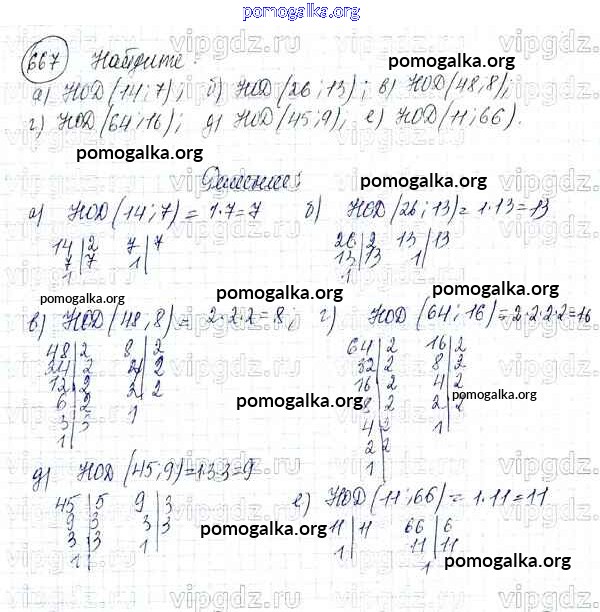 pomogalka.org
667 Найдите:
а) НОД(14; 7); б) НОД(26; 13); в) НОД(48, 8);
г) НОД(64; 16); д) НОД(45; 9), е) НОД(11; 66).
pomogalka.org
pomogalka.org
Решение:
а) НОД(14; 7) = 1·7=7 б) НОД(26; 13)= 1·13=13
14|2 7|7 26|2 13|13
7|7 1| 13|13 1|
1| 1
pomogalka.org
pomogalka.org
pomogalka.org
в) НОД(48, 8) = 2·2·2=8; г) НОД(64; 16)=2·2·2·2=16
48|2 8|2 64|2 16|2
24|2 4|2 32|2 8|2
12|2 2|2 16|2 4|2
6|2 1 8|2 2|2
3|3 4|2 1
1| 2|2
1|
pomogalka.org
pomogalka.org
д) НОД(45; 9)=1·3·3=9
45|5 9|3
9|3 3|3
3|3 1|
1|
е) НОД(11; 66)= 1·11=11
11|11 66|6
1| 11|11
1
pomogalka.org
pomogalka.org
pomogalka.org
vipgdz.ru